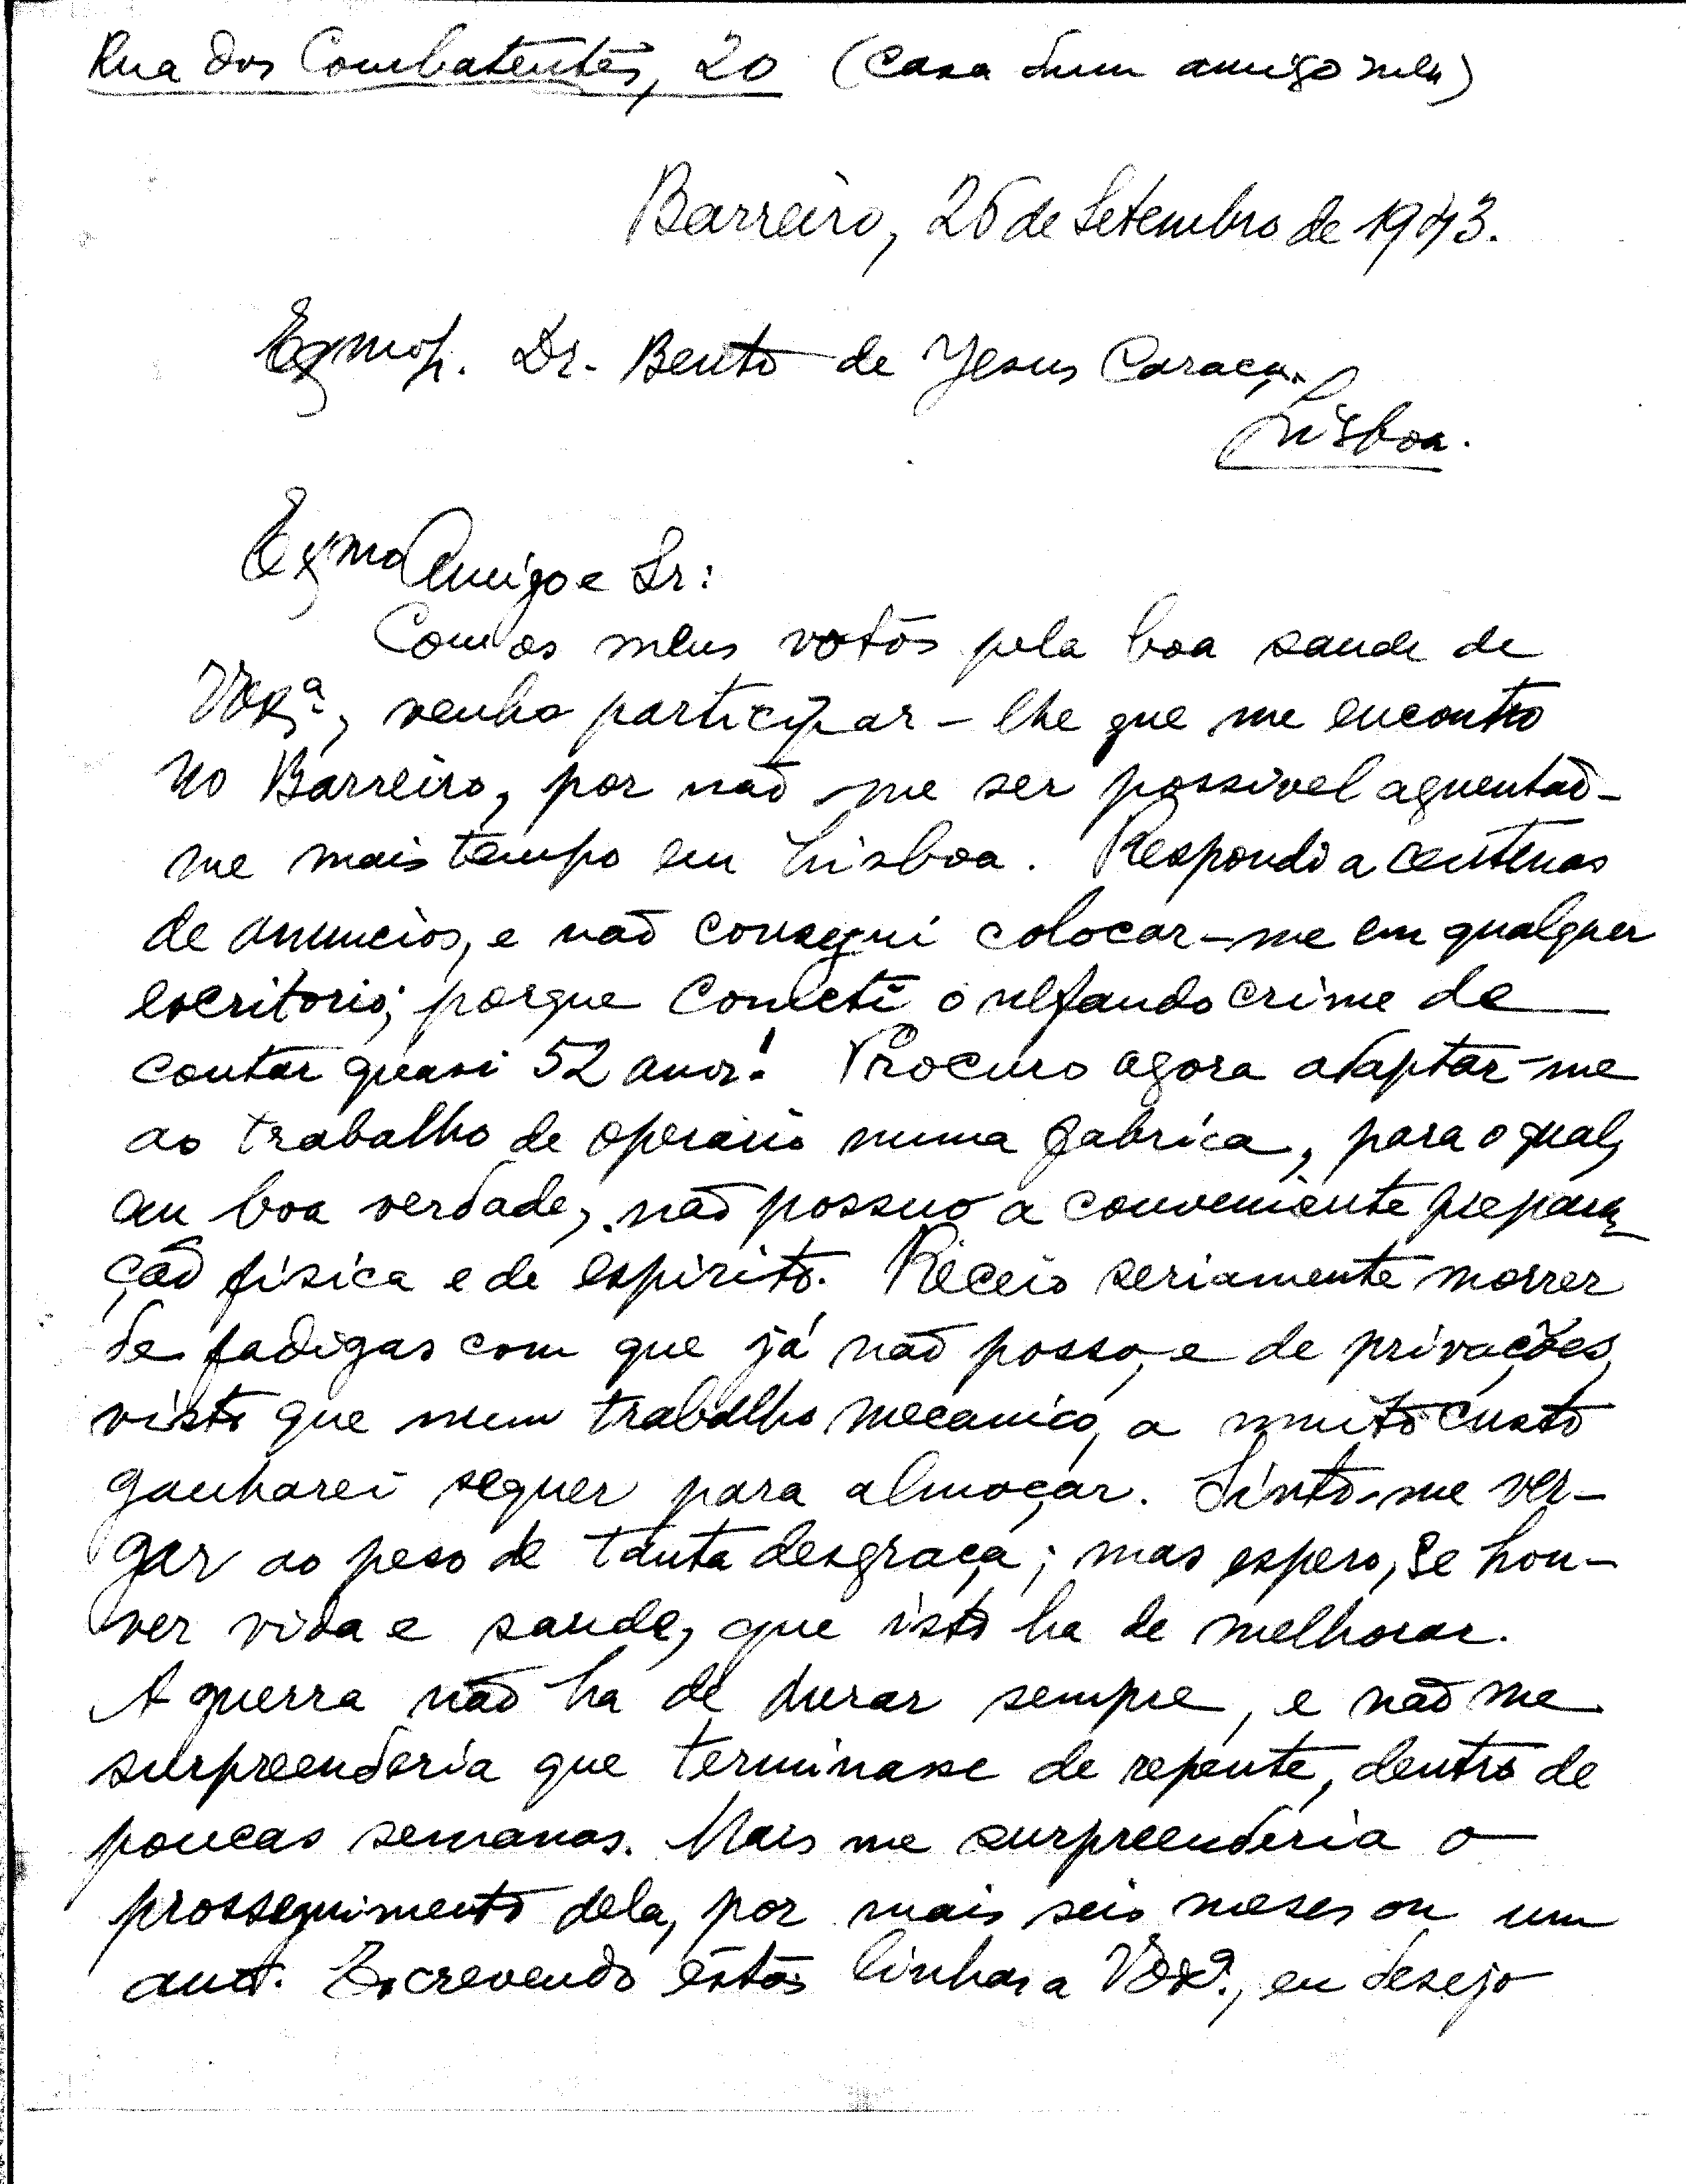 Rua dos Combatentes, 20 (Casa dum amigo meu)
Barreiro, 26 de Setembro de 1943.
Exmo Sr. Dr. Bento de Jesus Caraça.
Lisboa.
Exmo Amigo e Sr:
Com os meus votos pela boa saude de
V Exª, venho participar-lhe que me encontro
no Barreiro, por não me ser possivel aguentar-
me mais tempo em Lisboa. Respondi a centenas
de anuncios, e não consegui colocar-me em qualquer
escritorio; porque cometi o nefando crime de
contar quasi 52 anos! Procuro agora adaptar-me
ao trabalho de operario numa fabrica, para o qual,
em boa verdade, não possuo a conveniente prepara-
ção fisica e de espirito. Receio seriamente morrer
de fadigas com que já não posso, e de privações,
visto que num trabalho mecanico, a muito custo
ganharei sequer para almoçar. Sinto-me ver-
gar ao peso de tanta desgraça; mas espero, se hou-
ver vida e saude, que isto ha de melhorar.
A guerra não ha de durar sempre, e não me
surpreenderia que terminasse de repente, dentro de
poucas semanas. Mais me surpreenderia o
prosseguimento dela, por mais seis meses ou um
ano. Escrevendo estas linhas a V Exª., eu desejo